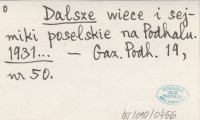 0
Dalsze wiece i sej-
miki poselskie na Podhalu.
1931... — Gaz. Podh. 19,
nr 50.